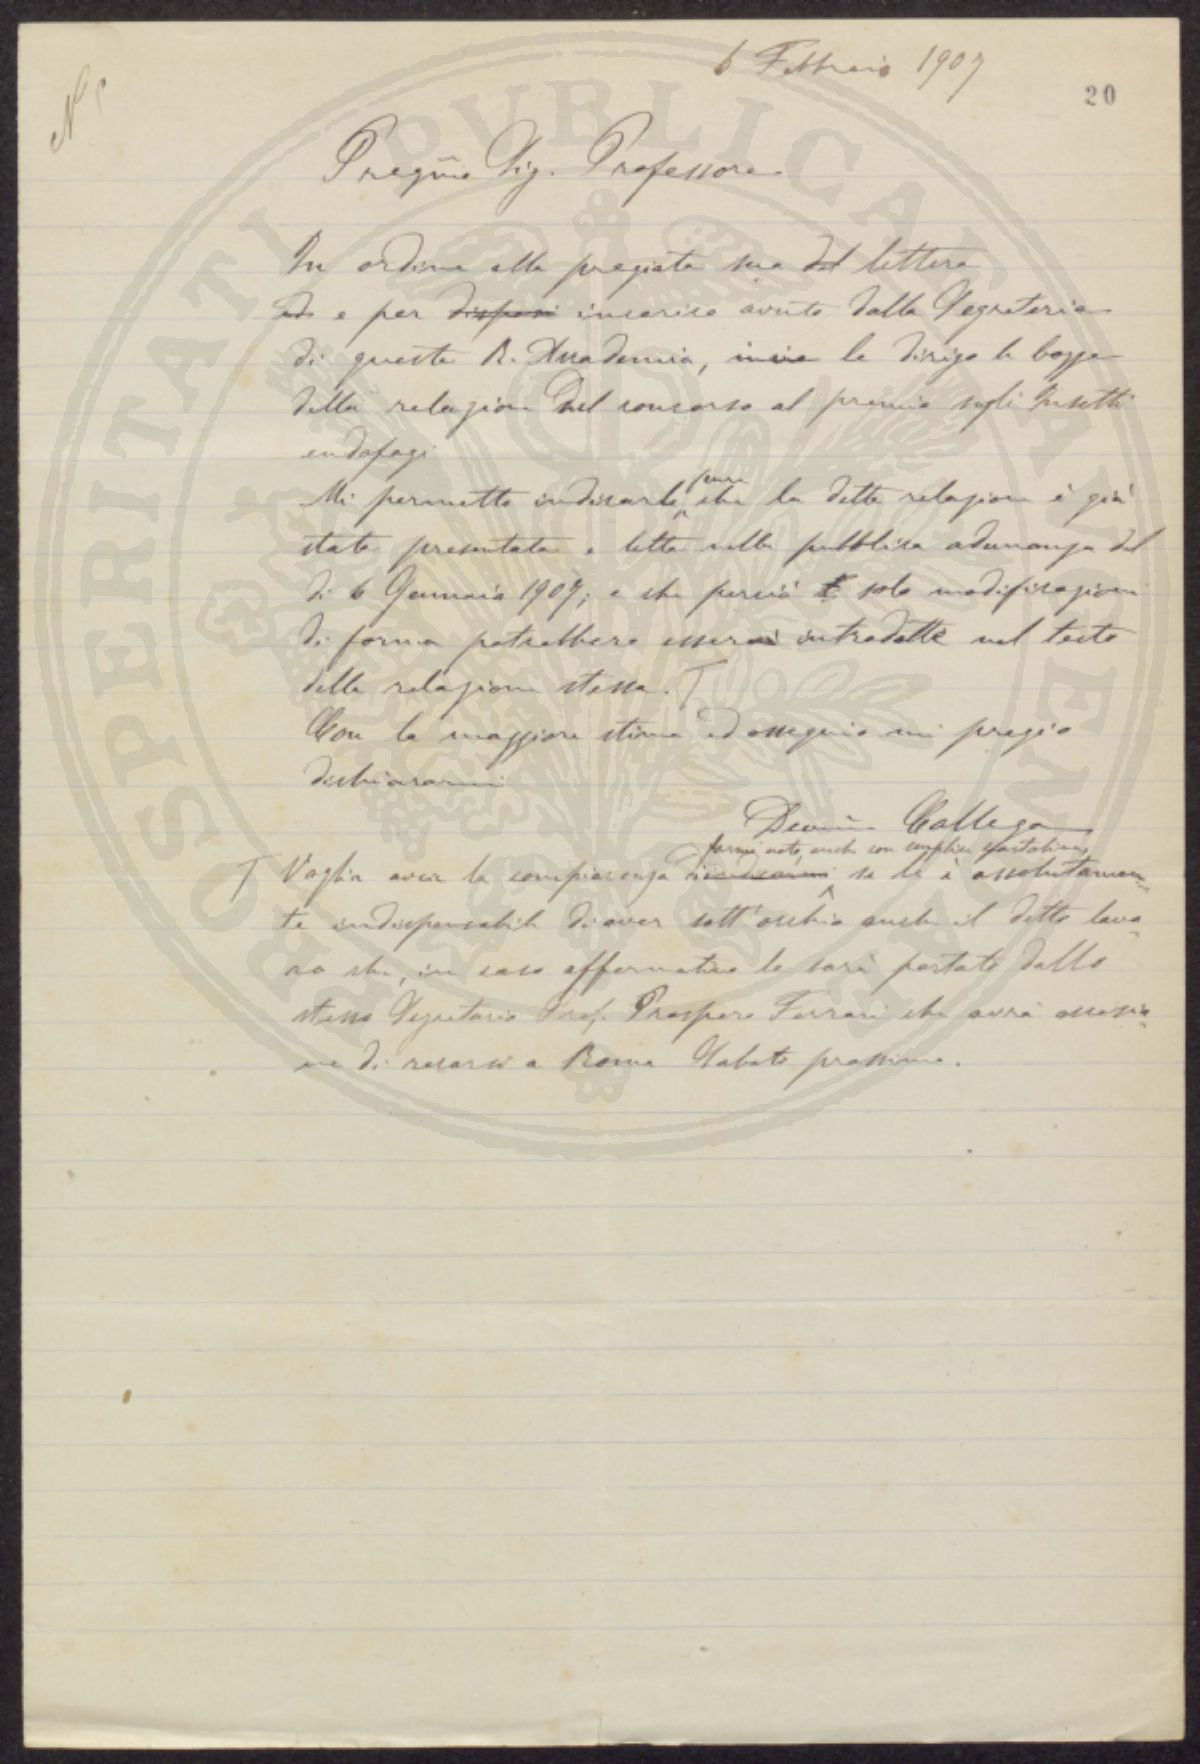 6 Febbraio 1907
20
N
Pregmo Sig. Professore
In ordine alla pregiata sua del lettera
ed e per disposi incarico avuto dalla Segreteria
di questa R. Accademia, invio le dirigo le bozze
della relazione del concorso al premio sugli Insetti
endofagi
pure
Mi permetto indicarle che la detta relazione è già
stata presentata e letta nella pubblica adunanza del
di 6 Gennaio 1907; e che perciò solo modificazioni
di forma potrebbero essere introdotte nel testo
della relazione stessa. T
Con la maggiore stima ed ossequio mi pregio
dichiararmi
Devmo Collega
farmi noto, anche con semplice cartolina,
T Voglia aver la compiacenza di se le è assolutamen-
te indispensabile di aver sott'occhio anche il detto lavo-
ro che, in caso affermativo le sarà portato dallo
stesso Segretario Prof. Prospero Ferrari che avrà occasio-
ne di recarsi a Roma Sabato prossimo.
SPERITATI PUBLICAE